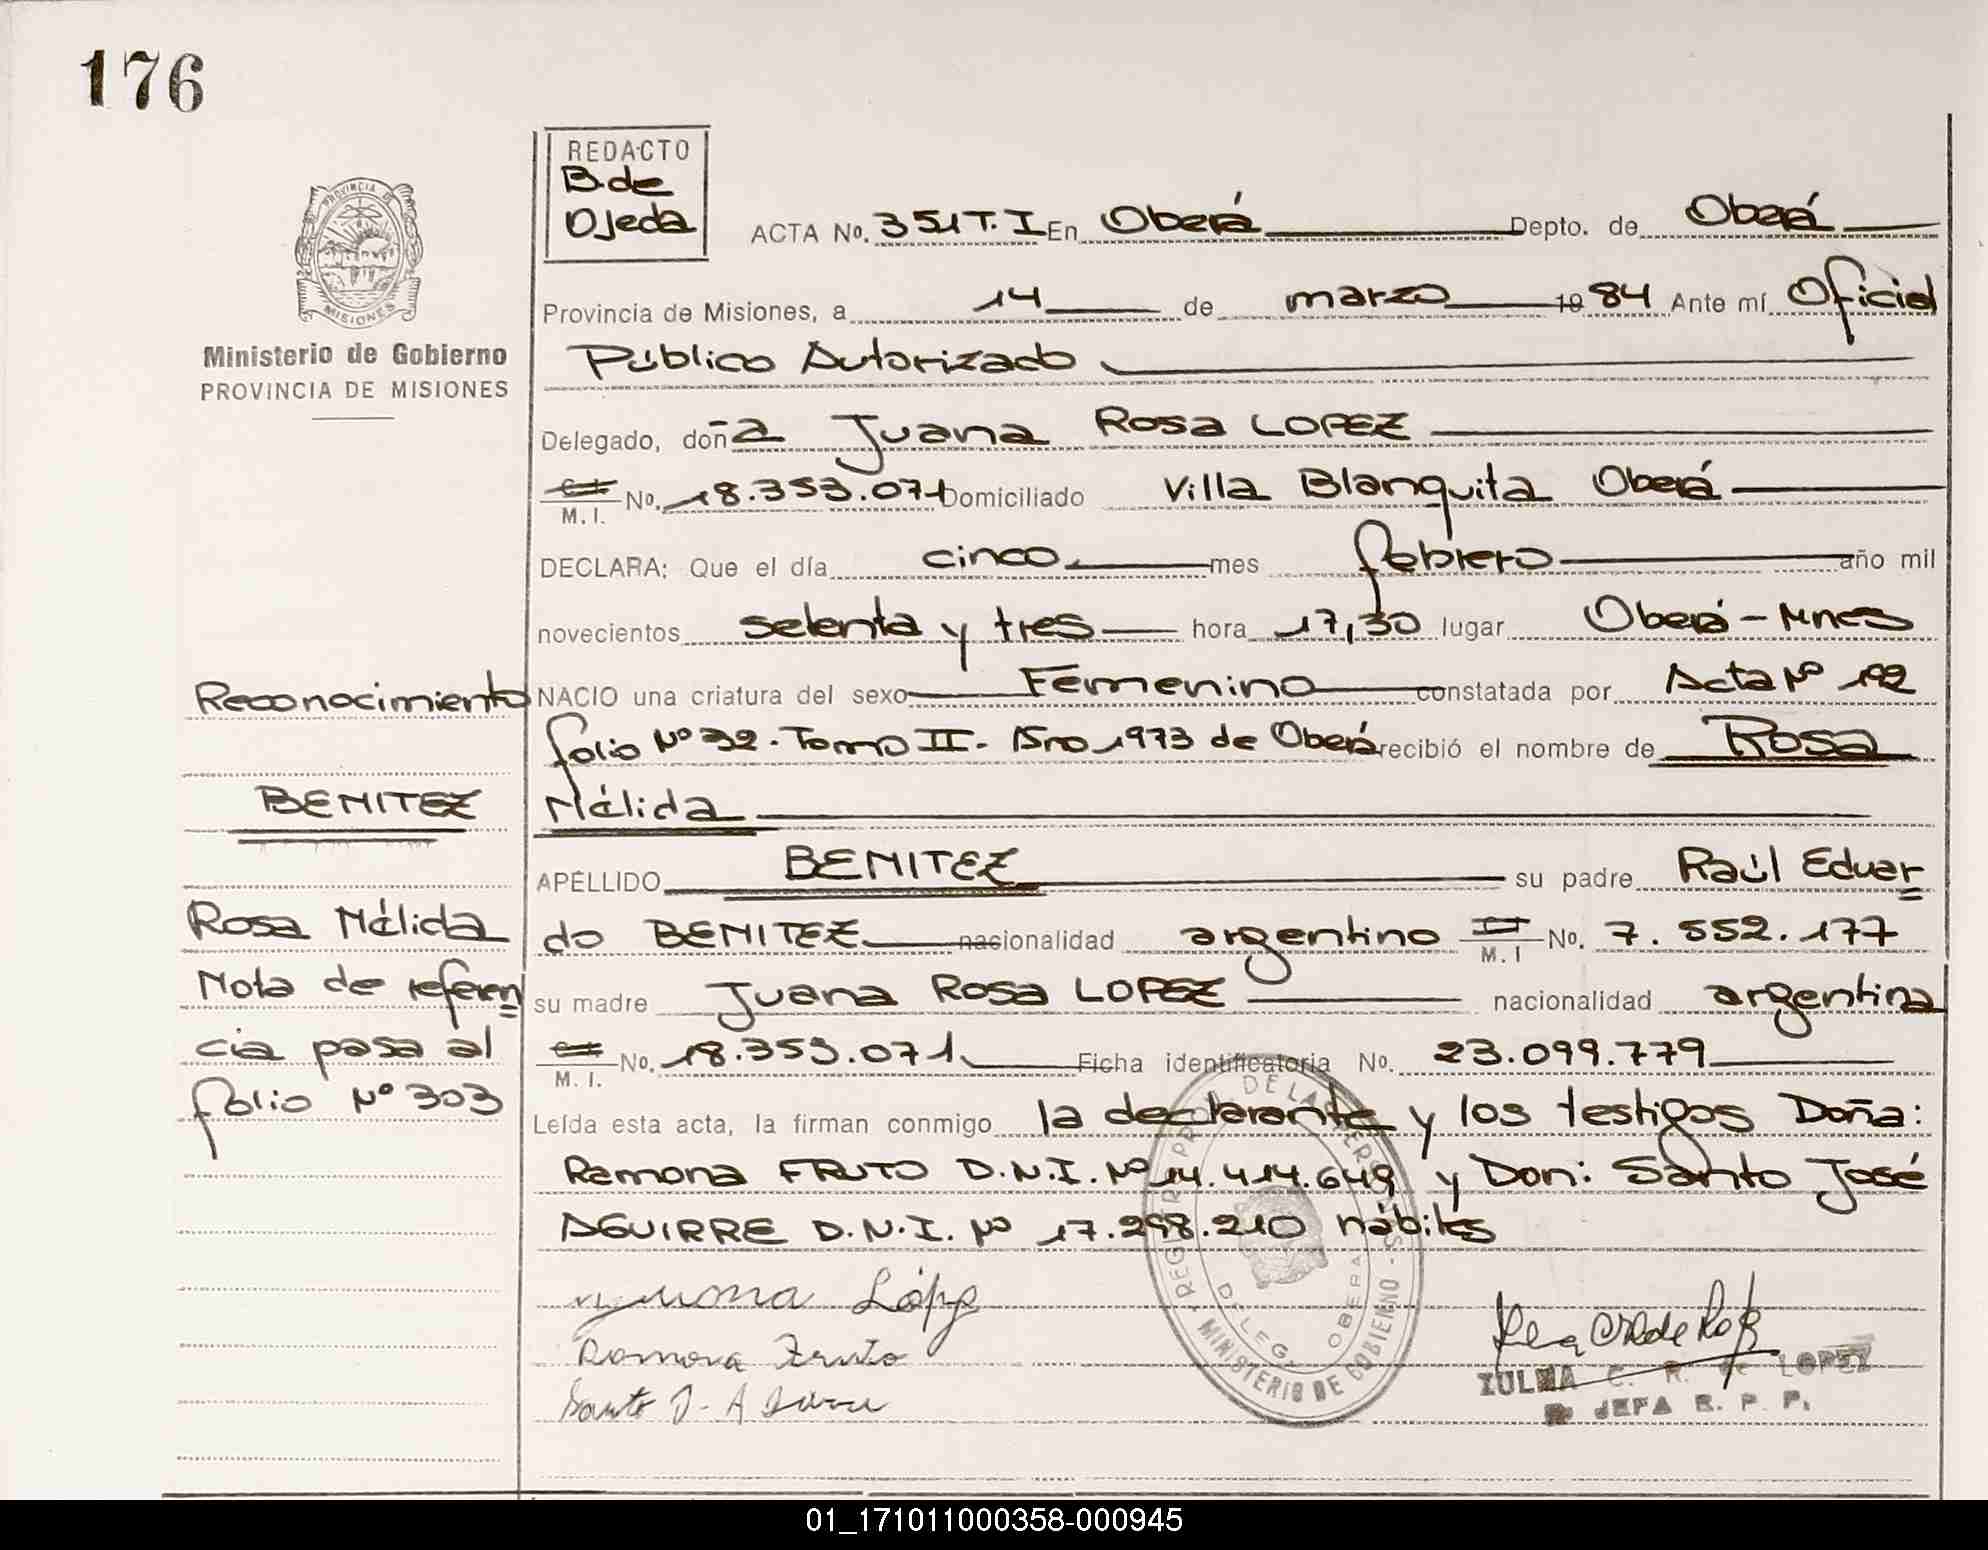 176
REDACTO
B. de
Ojeda
PROVINCIA DE
MISIONES
Ministerio de Gobierno
PROVINCIA DE MISIONES
ACTA No. 351 T. I En Oberá Depto. de Oberá
Provincia de Misiones, a 14 de marzo 19 84 Ante mí Oficial
Público Autorizado
Delegado, doña Juana Rosa LOPEZ
M. I. No. 18.353.071 Domiciliado Villa Blanquita Oberá
DECLARA: Que el día cinco mes febrero año mil
novecientos setenta y tres hora 17,30 lugar Oberá - Mnes
NACIO una criatura del sexo Femenino constatada por Acta Nº 192
folio Nº 32. Tomo II. Año 1973 de Oberá recibió el nombre de Rosa
Nélida
APELLIDO BENITEZ su padre Raúl Eduar
do BENITEZ nacionalidad argentino M. I No. 7.552.177
su madre Juana Rosa LOPEZ nacionalidad argentina
M. I. No. 18.353.071 Ficha identificatoria No. 23.099.779
Leída esta acta, la firman conmigo la declarante y los testigos Doña:
Ramona FRUTO D.N.I. Nº 14.414.649 y Don: Santo José
AGUIRRE D.N.I. Nº 17.298.210 hábiles
Reconocimiento
BENITEZ
Rosa Nélida
Nota de referen
cia pasa al
folio Nº 303
López
Ramona Fruto
Santo J. A
DE LAS PERSONAS
MINISTERIO DE GOBIERNO
DELEG. OBERA
ZULMA C. R. de LOPEZ
JEFA R. P. P.
01_171011000358-000945